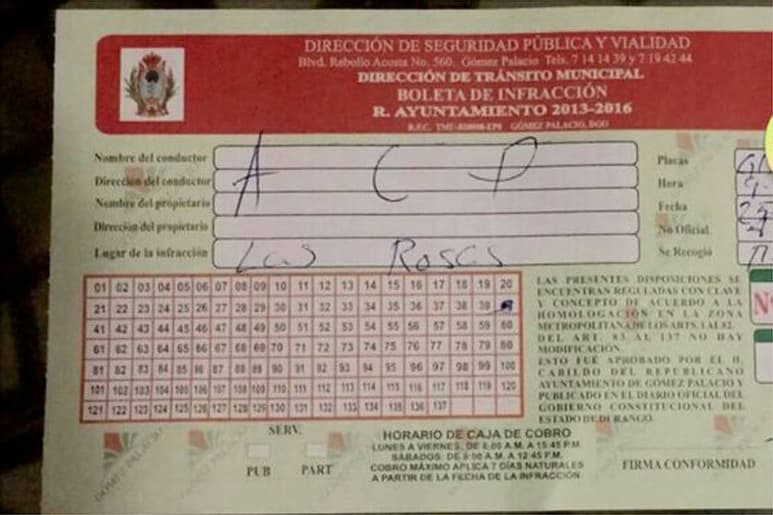 DIRECCIÓN DE SEGURIDAD PÚBLICA Y VIALIDAD
Blvd. Rebollo Acosta No. 560, Gómez Palacio Tels. 7 14 14 39 y 7 19 42 44
DIRECCIÓN DE TRÁNSITO MUNICIPAL
BOLETA DE INFRACCIÓN
R. AYUNTAMIENTO 2013-2016
GÓMEZ PALACIO, DGO
Nombre del conductor
Dirección del conductor
Nombre del propietario
Dirección del propietario
A C P
Lugar de la infracción Las Rosas
Placas
Hora
Fecha
No Oficial
Se Recogió
01 02 03 04 05 06 07 08 09 10 11 12 13 14 15 16 17 18 19 20
21 22 23 24 25 26 27 28 29 30 31 32 33 34 35 36 37 38 39
41 42 43 44 45 46 47 48 49 50 51 52 53 54 55 56 57 58 59 60
61 62 63 64 65 66 67 68 69 70 71 72 73 74 75 76 77 78 79 80
81 82 83 84 85 86 87 88 89 90 91 92 93 94 95 96 97 98 99 100
101 102 103 104 105 106 107 108 109 110 111 112 113 114 115 116 117 118 119 120
121 122 123 124 125 126 127 128 129 130 131 132 133 134 135 136 137
LAS PRESENTES DISPOSICIONES SE
ENCUENTRAN REGULADAS CON CLAVE
Y CONCEPTO DE ACUERDO A LA
HOMOLOGACIÓN EN LA ZONA
METROPOLITANA DE LOS ARTS. 1 AL 82.
DEL ART. 83 AL 137 NO HAY
MODIFICACIÓN.
ESTO FUÉ APROBADO POR EL H.
CABILDO DEL REPUBLICANO
AYUNTAMIENTO DE GÓMEZ PALACIO Y
PUBLICADO EN EL DIARIO OFICIAL DEL
GOBIERNO CONSTITUCIONAL DEL
ESTADO DE DURANGO.
SERV.
PUB PART
HORARIO DE CAJA DE COBRO
LUNES A VIERNES, DE 8:00 A.M. A 15:45 P.M.
SÁBADOS: DE 9:00 A.M. A 12:45 P.M.
COBRO MÁXIMO APLICA 7 DÍAS NATURALES
A PARTIR DE LA FECHA DE LA INFRACCIÓN.
FIRMA CONFORMIDAD
GÓMEZ PALACIO